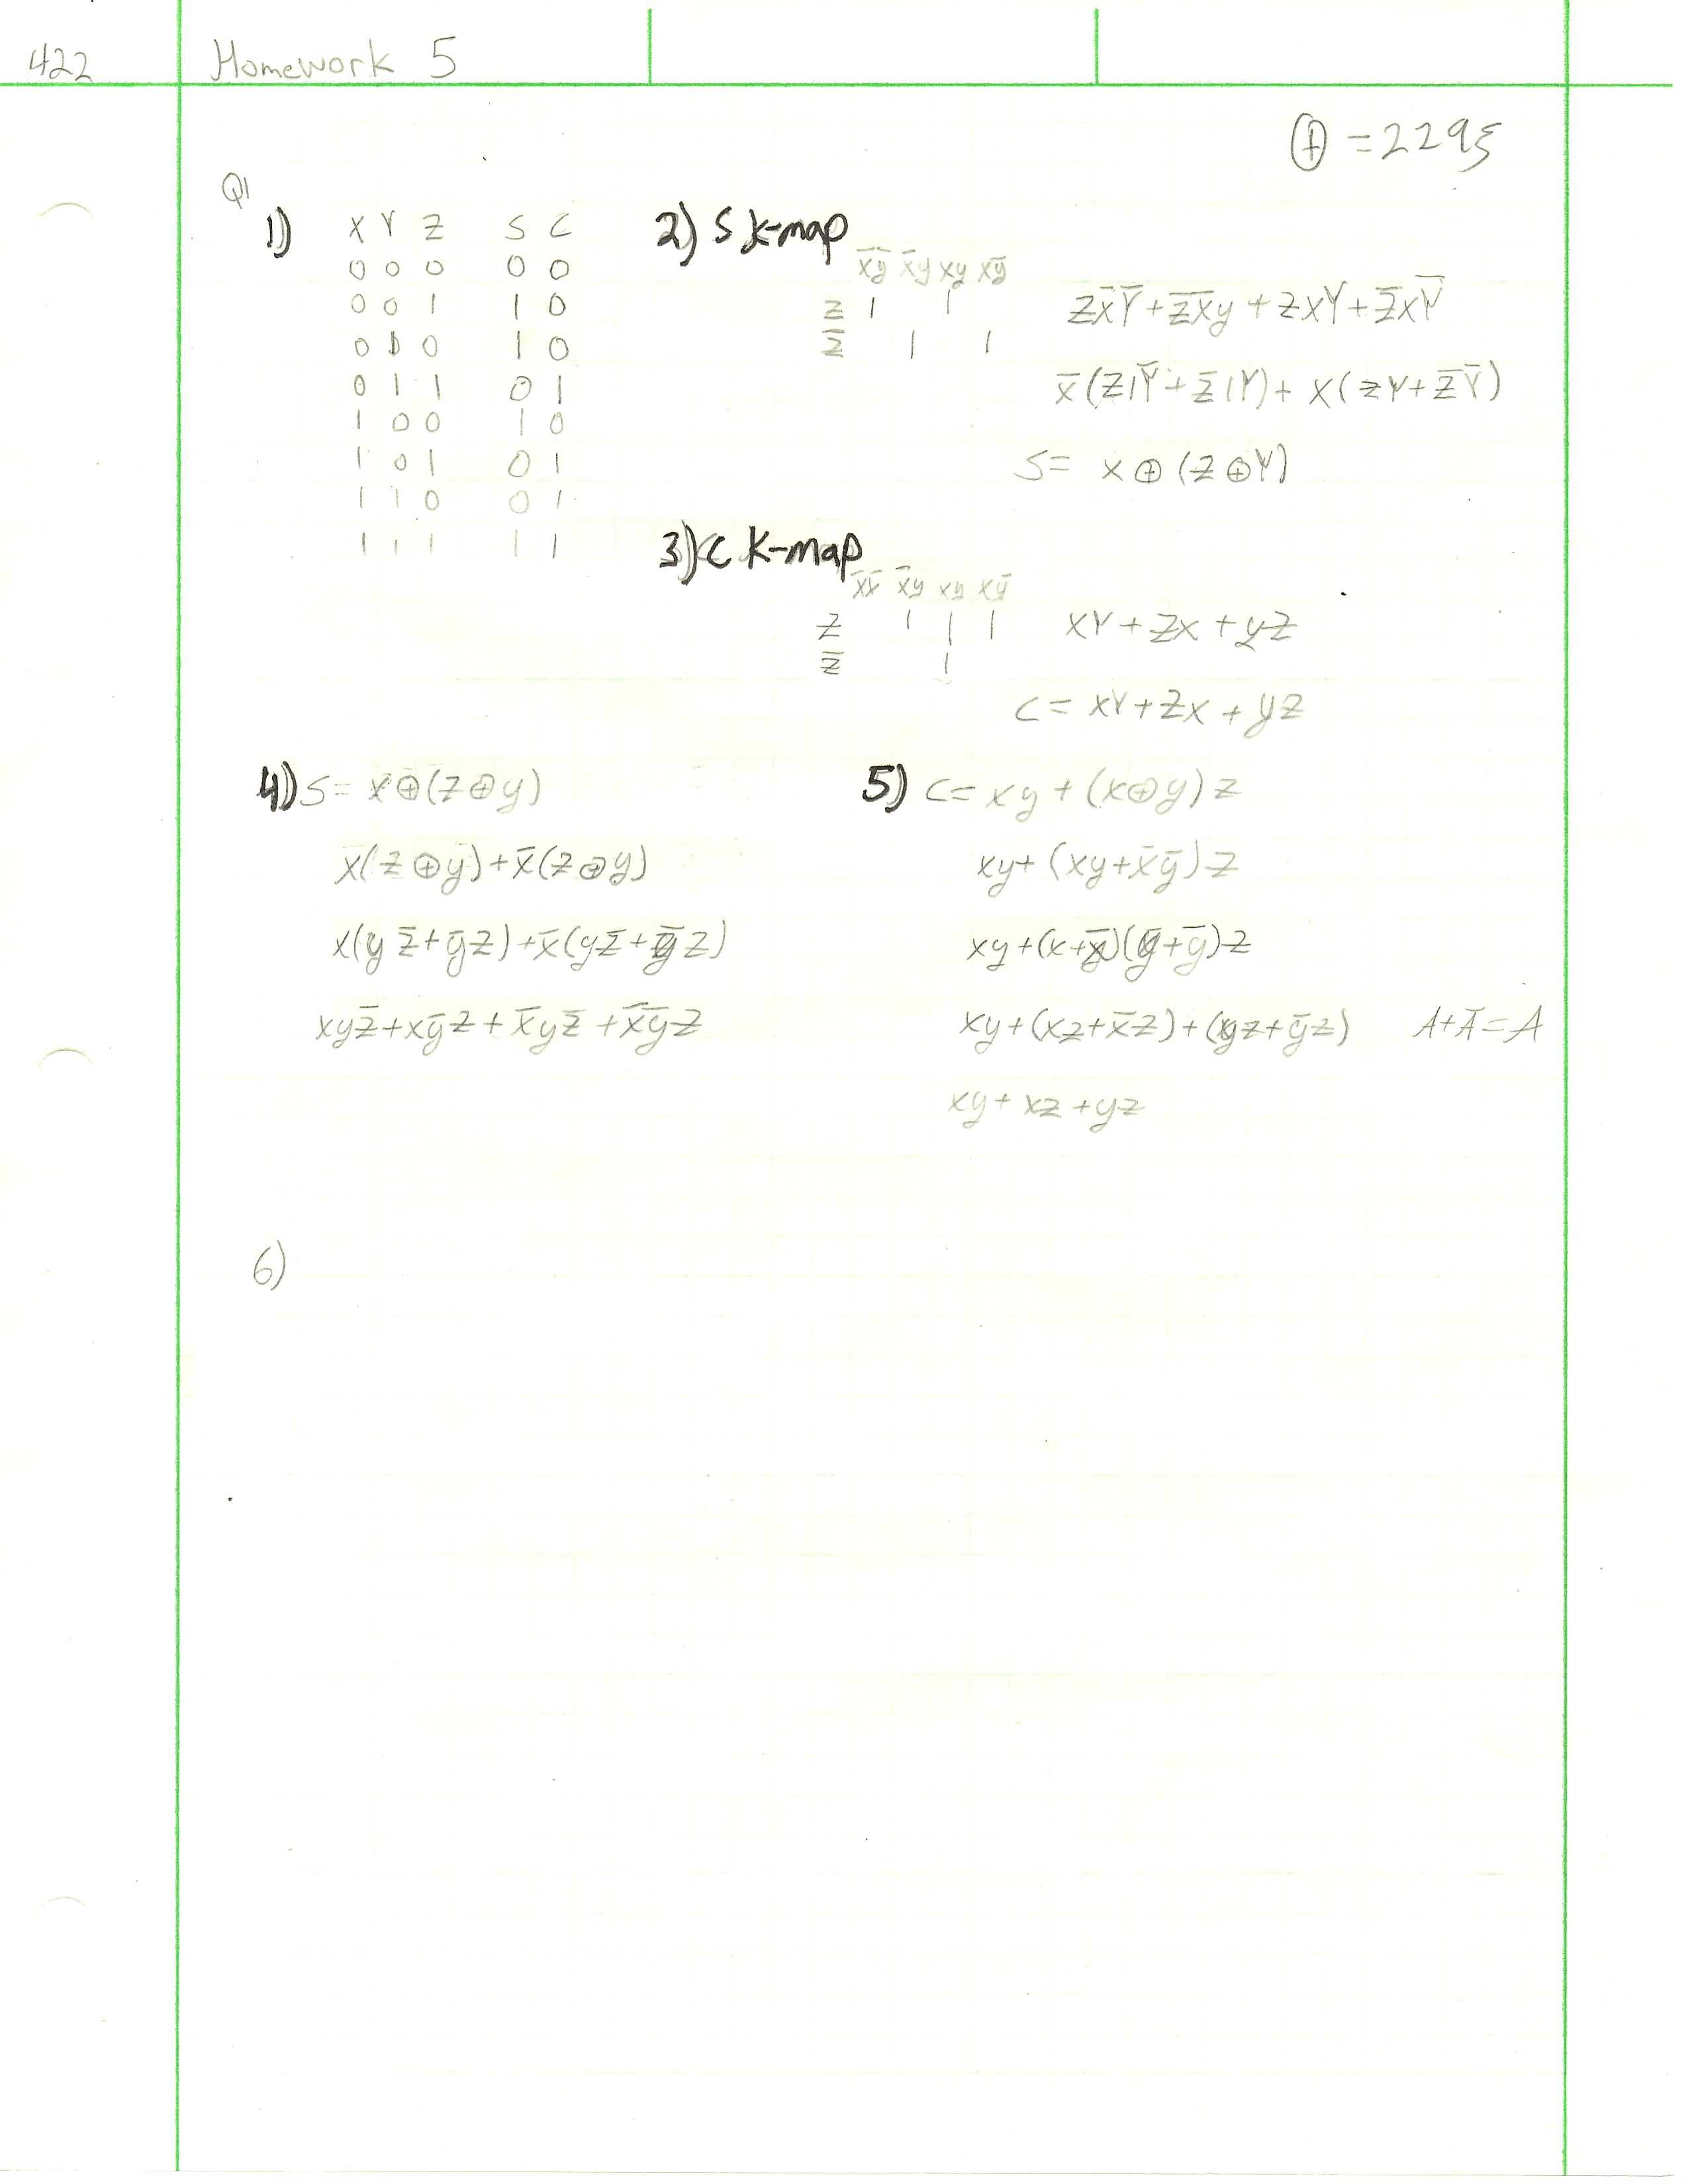 422 Homework 5
⊕ = 2295
Q1
1) X Y Z S C
0 0 0 0 0
0 0 1 1 0
0 1 0 1 0
0 1 1 0 1
1 0 0 1 0
1 0 1 0 1
1 1 0 0 1
1 1 1 1 1
2) S K-map
x̄ȳ x̄y xy xȳ
z 1 1
z̄ 1 1
zx̄Ȳ + z̄x̄y + zxY + z̄xȲ
x̄(z1Ȳ + z̄1Y) + x(zY + z̄Ȳ)
S = x ⊕ (z ⊕ Y)
3) C K-map
x̄x̄ x̄y xy xȳ
z 1 1 1
z̄ 1
xY + zx + yz
C = xY + zx + yz
4) S = x ⊕ (z ⊕ y)
x(z ⊕ y) + x̄(z ⊕ y)
x(y z̄ + ȳz) + x̄(yz̄ + ȳz)
xyz̄ + xȳz + x̄yz̄ + x̄ȳz
5) C = xy + (x⊕y) z
xy + (xy + x̄ȳ) z
xy + (x + x̄)(y + ȳ) z
xy + (xz + x̄z) + (yz + ȳz) A + Ā = A
xy + xz + yz
6)